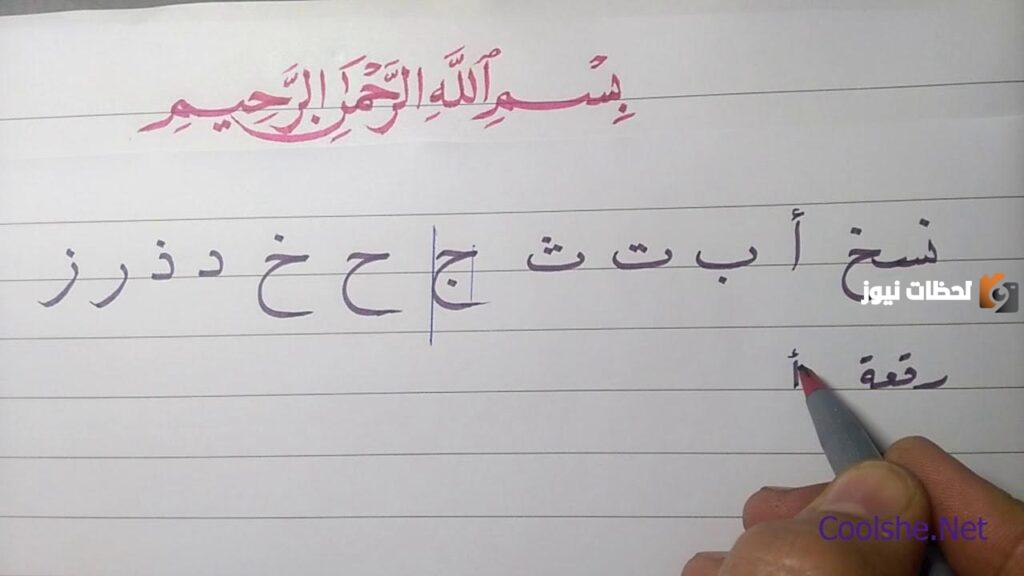 بِسْمِ ٱللَّهِ الرَّحْمَٰنِ الرَّحِيمِ
نسخ أ ب ت ث ج ح خ د ذ ر ز
لحظات نيوز
رقعة أ
Coolshe.Net